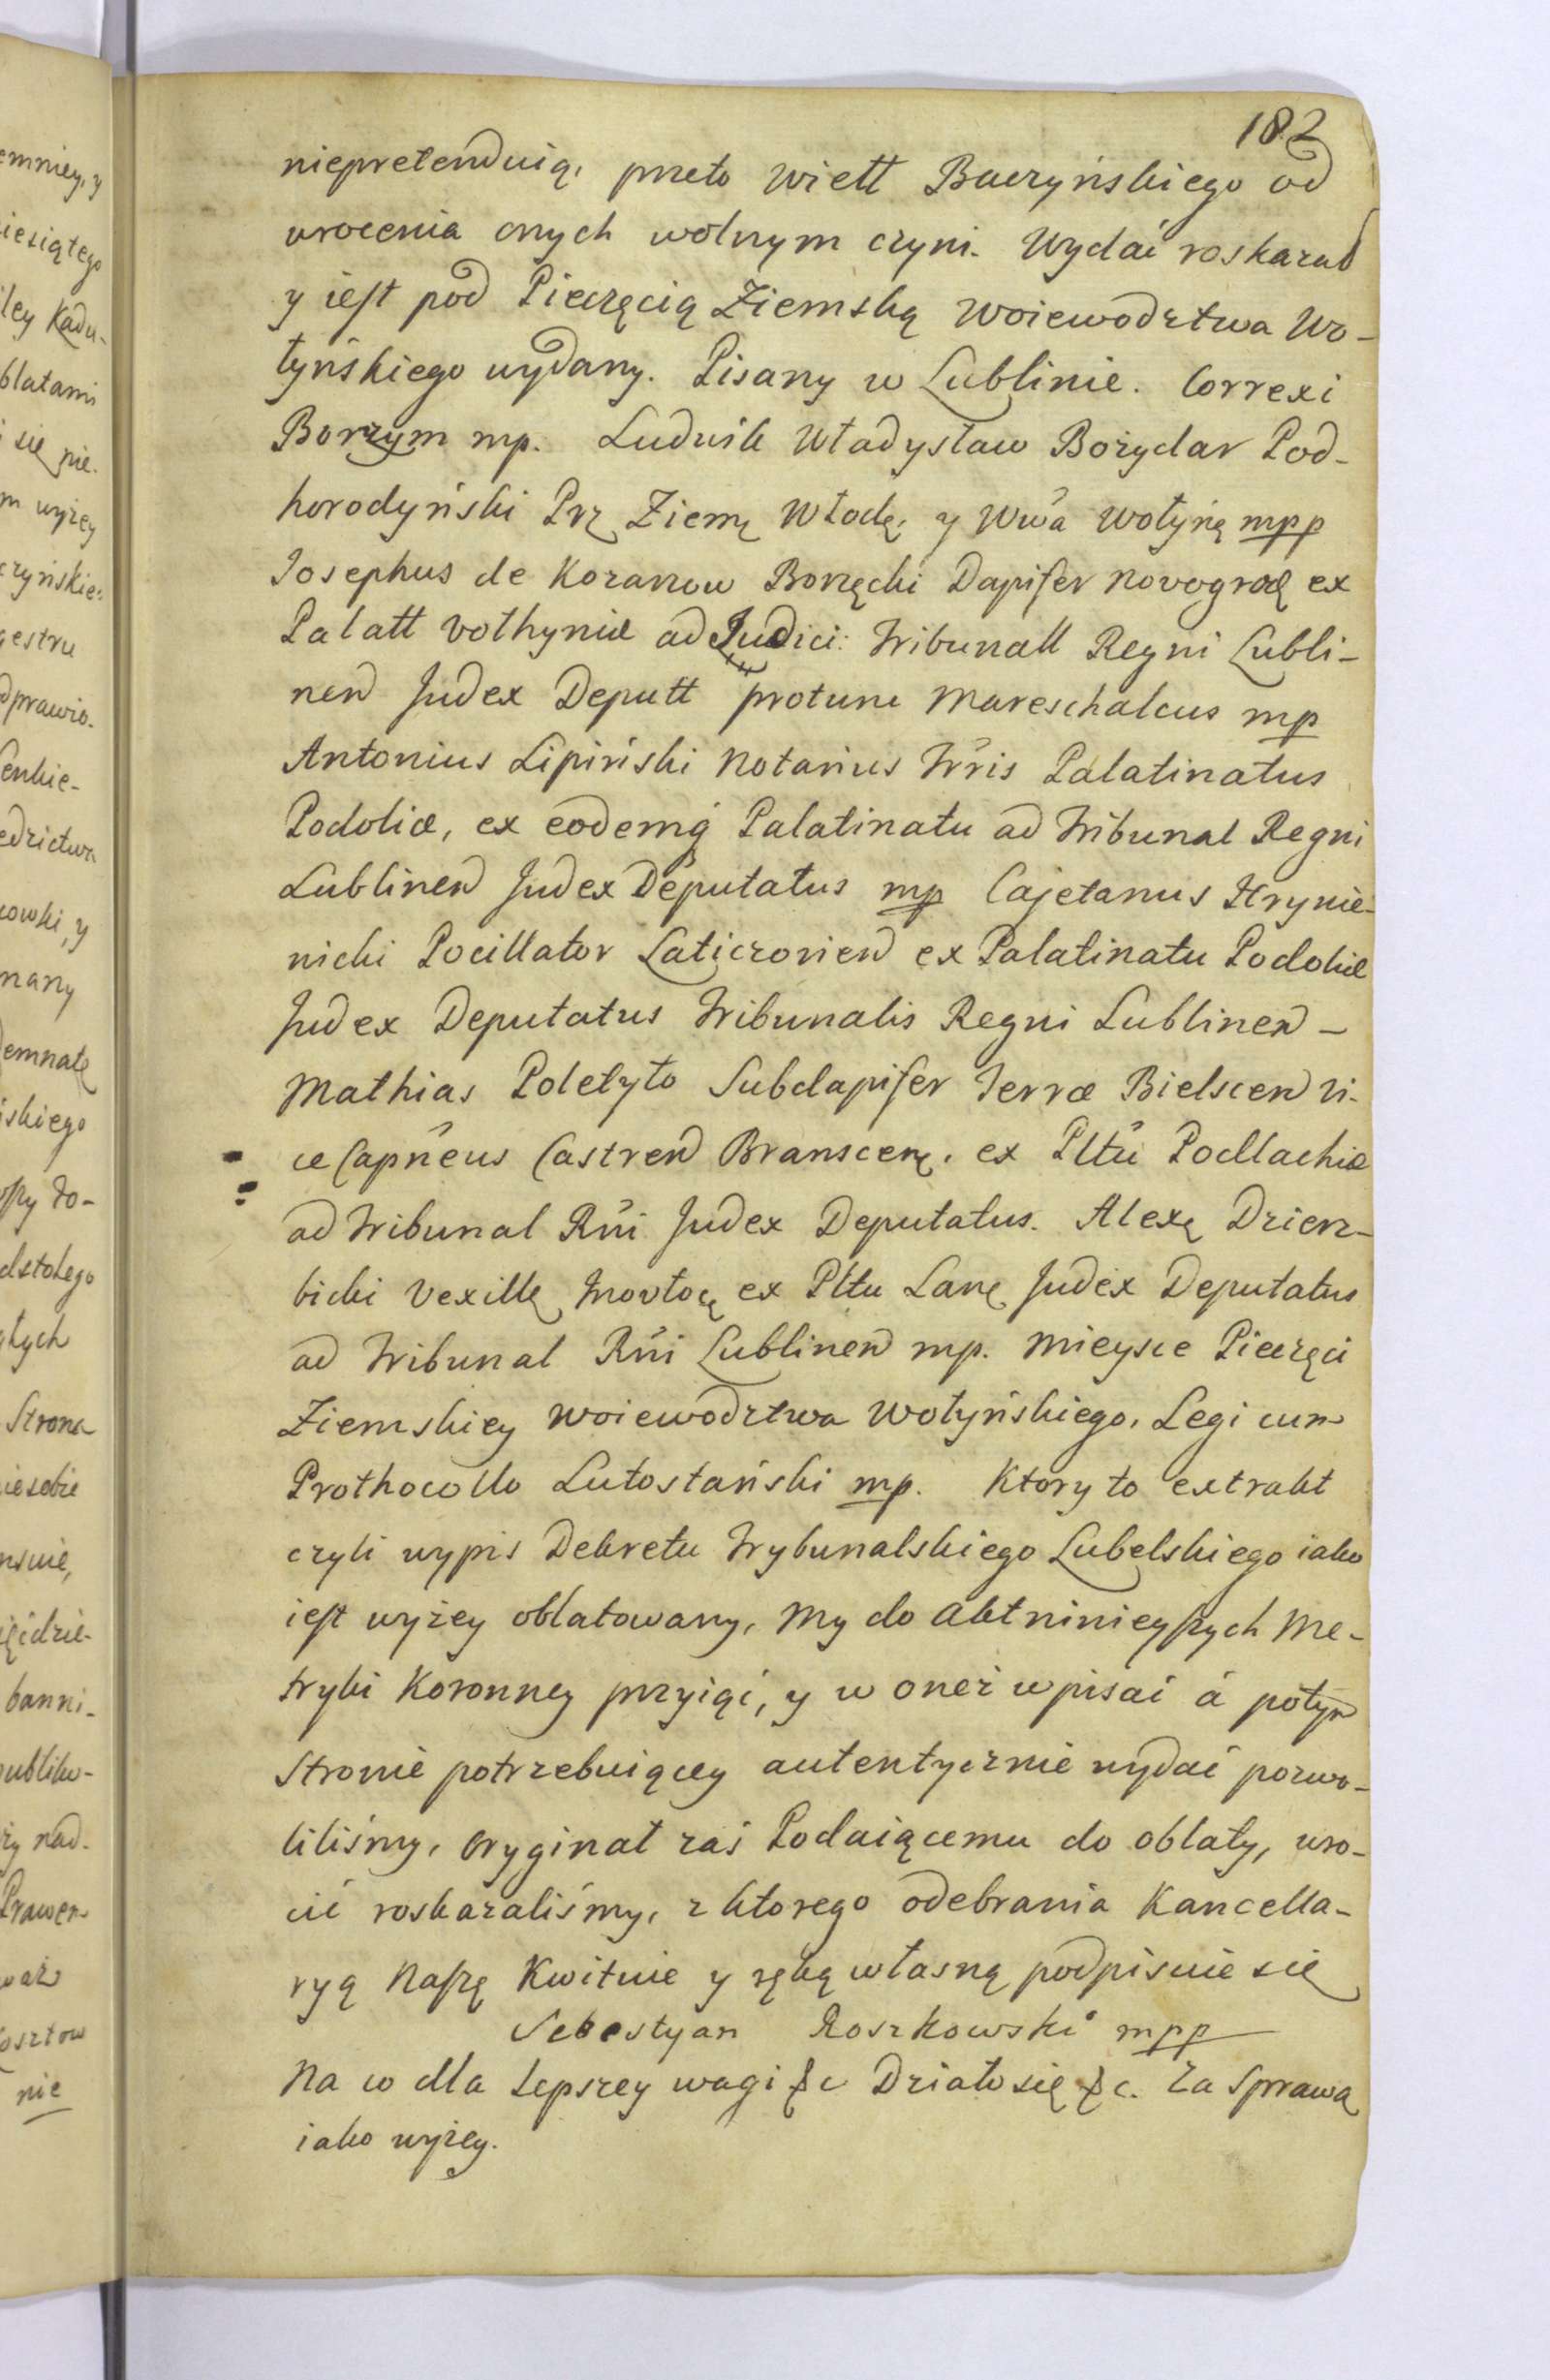 182
niepretenduią, przeto Wielt Baczyńskiego od
wrocenia onych wolnym czyni. Wydać roskazał
y iest pod Pieczęcią Ziemską Woiewodztwa Wo-
łyńskiego wydany. Pisany w Lublinie. Correxi
Borzym mp. Ludwik Władysław Bożydar Pod-
horodyński Prz Ziem Włodz. y Wwa Wołyń mpp
Josephus de Kozarzow Borzęcki Dapifer Novogrod ex
Palatt Volhyniæ ad Judici: Tribunall Regni Lubli-
nen Judex Deputt protunc Mareschalcus mp
Antonius Lipiński Notarius Trris Palatinatus
Podoliæ, ex eodemq Palatinatu ad Tribunal Regni
Lublinen Judex Deputatus mp Cajetanus Hrynie-
nicki Pocillator Laticzovien ex Palatinatu Podoliæ
Judex Deputatus Tribunalis Regni Lublinen –
Mathias Poletyło Subdapifer Terræ Bielscen Vi-
ce Capneus Castren Branscen. ex Pltu Podlachiæ
ad Tribunal Rni Judex Deputatus. Alex Dzierz-
bicki Vexill Inovloc ex Pltu Lanc Judex Deputatus
ad Tribunal Rni Lublinen mp. Mieysce Pieczęci
Ziemskiey Woiewodztwa Wołyńskiego, Legi cum
Prothocollo Lutostański mp. Ktory to extrakt
czyli wypis Dekretu Trybunalskiego Lubelskiego iako
iest wyżey oblatowany, My do Akt ninieyszych Me-
tryki Koronney przyiąć, y w oneż wpisać á potym
Stronie potrzebuiącey autentycznie wydać pozwo-
liliśmy, Oryginał zaś Podaiącemu do oblaty, wro-
cić roskazaliśmy, z ktorego odebrania Kancella-
ryą Naszę Kwituie y ręką własną podpisuie się
Sebestyan Roszkowski mpp
Na co dla Lepszey wagi &c Działo się &c. Za Sprawą
iako wyżey.